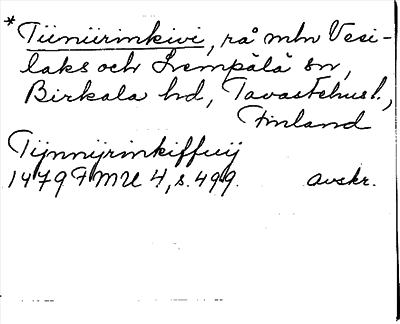 * Tiiniirinkivi, rå mln Vesi-
laks och Lempälä sn,
Birkala hd, Tavastehusl.,
Finland
Tijnnijrinkiffuij
1479 FMU 4, s. 499. avskr.